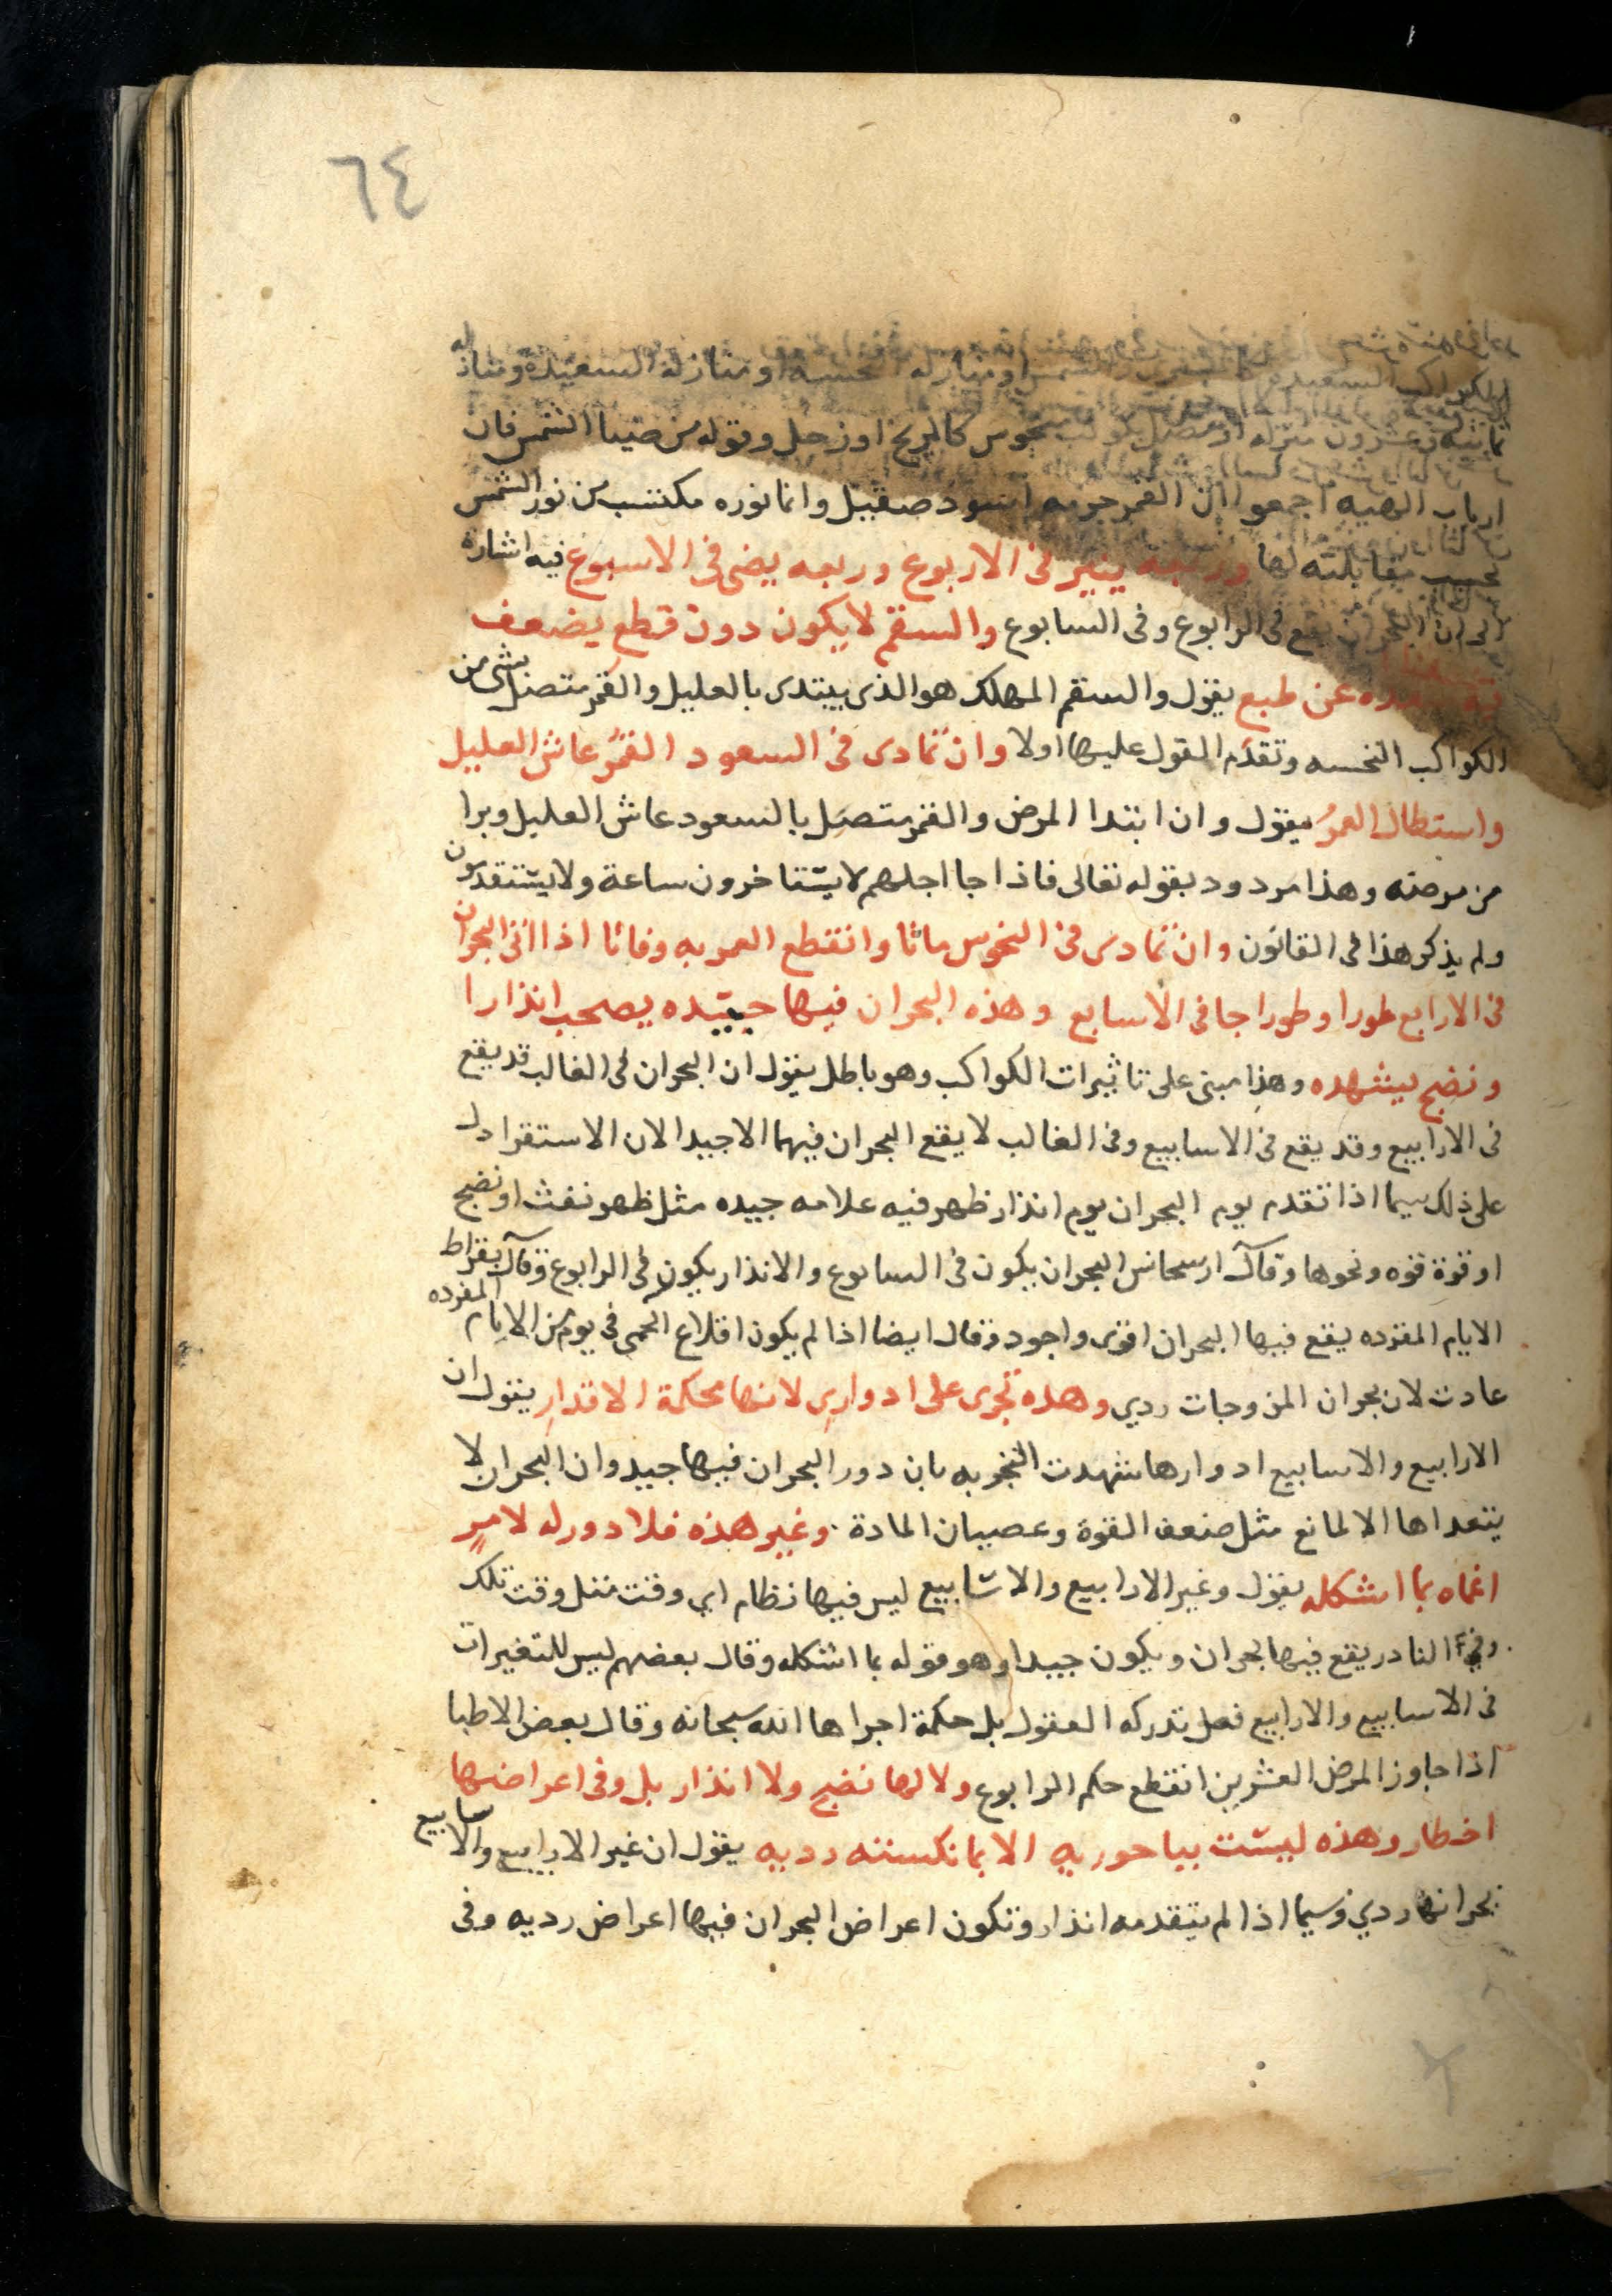 ٦٤
الكواكب السعيده الشمس ومنازله النحسه او منازله السعيده ومنازله
ثمانيه وعشرون منزله او متصل بكوكب منحوس كالمريخ او زحل وقوله من ضيا الشمس فان
ارباب الهييه اجمعوا ان القمر جرمه اسود صقيل وانما نوره مكتسب من نور الشمس
بحسب مقابلته لها وربعه ينير فى الاربوع وربعه يضى فى الاسبوع فيه اشاره
الى ان البحران يقع فى الرابوع وفى السابوع والسقم لا يكون دون قطع يضعف
عن طبع يقول والسقم المهلك هو الذى يبتدى بالعليل والقمر متصل بشى من
الكواكب النحسه وتقدم القول عليها اولا وان تمادى فى السعود القمر عاش العليل
واستطال العمر يقول وان ابتدا المرض والقمر متصل بالسعود عاش العليل وبرا
من مرضه وهذا مردود بقوله تعالى فاذا جا اجلهم لا يستاخرون ساعة ولا يستقدمون
ولم يذكر هذا فى القانون وان تمادى فى النحوس ماتا وانقطع العمر به وفاتا اذا اتى البحران
فى الارابع طورا وطورا جا فى الاسابع وهذه البحران فيها جيده يصحب انذارا
ونضج يشهده وهذا مبنى على تاثيرات الكواكب وهو باطل يقول ان البحران فى الغالب قد يقع
فى الارابيع وقد يقع فى الاسابيع وفى الغالب لا يقع البحران فيهما الا جيدا لان الاستقرا دل
على ذلك سيما اذا تقدم يوم البحران يوم انذار ظهر فيه علامه جيده مثل ظهور نفث او نضج
او قوة قوه ونحوها وقال ارسجانس البحران يكون فى السابوع والانذار يكون فى الرابوع وقال بقراط
الايام المفرده يقع فيها البحران اقوى واجود وقال ايضا اذا لم يكون اقلاع الحمى فى يوم من الايام المفرده
عادت لان بحران المزوجات ردي وهذه تجرى على ادوارى لانها محكمة الاقدار يقول ان
الارابيع والاسابيع ادوارها شهدت التجربه بان دور البحران فيها جيد وان البحران لا
يتعداها الا لمانع مثل ضعف القوة وعصيان المادة وغير هذه فلا دور له لامر
انماه بما اشكله يقول وغير الارابيع والاسابيع ليس فيها نظام اي وقت مثل وقت تلك
وفى النادر يقع فيها بحران ويكون جيدا وهو قوله بما اشكله وقال بعضهم ليس للتغيرات
فى الاسابيع والارابيع فصل تدركه العقول بل حكمة اجراها الله سبحانه وقال بعض الاطبا
اذا جاوز المرض العشرين انقطع حكم الرابوع ولا لها نضج ولا انذار بل وفى اعراضها
اخطار وهذه ليست بباحوريه الا بما نكسته رديه يقول ان غير الارابيع والاسابيع
بحرانها ردي وسيما اذا لم يتقدمه انذار وتكون اعراض البحران فيها اعراض رديه وفى